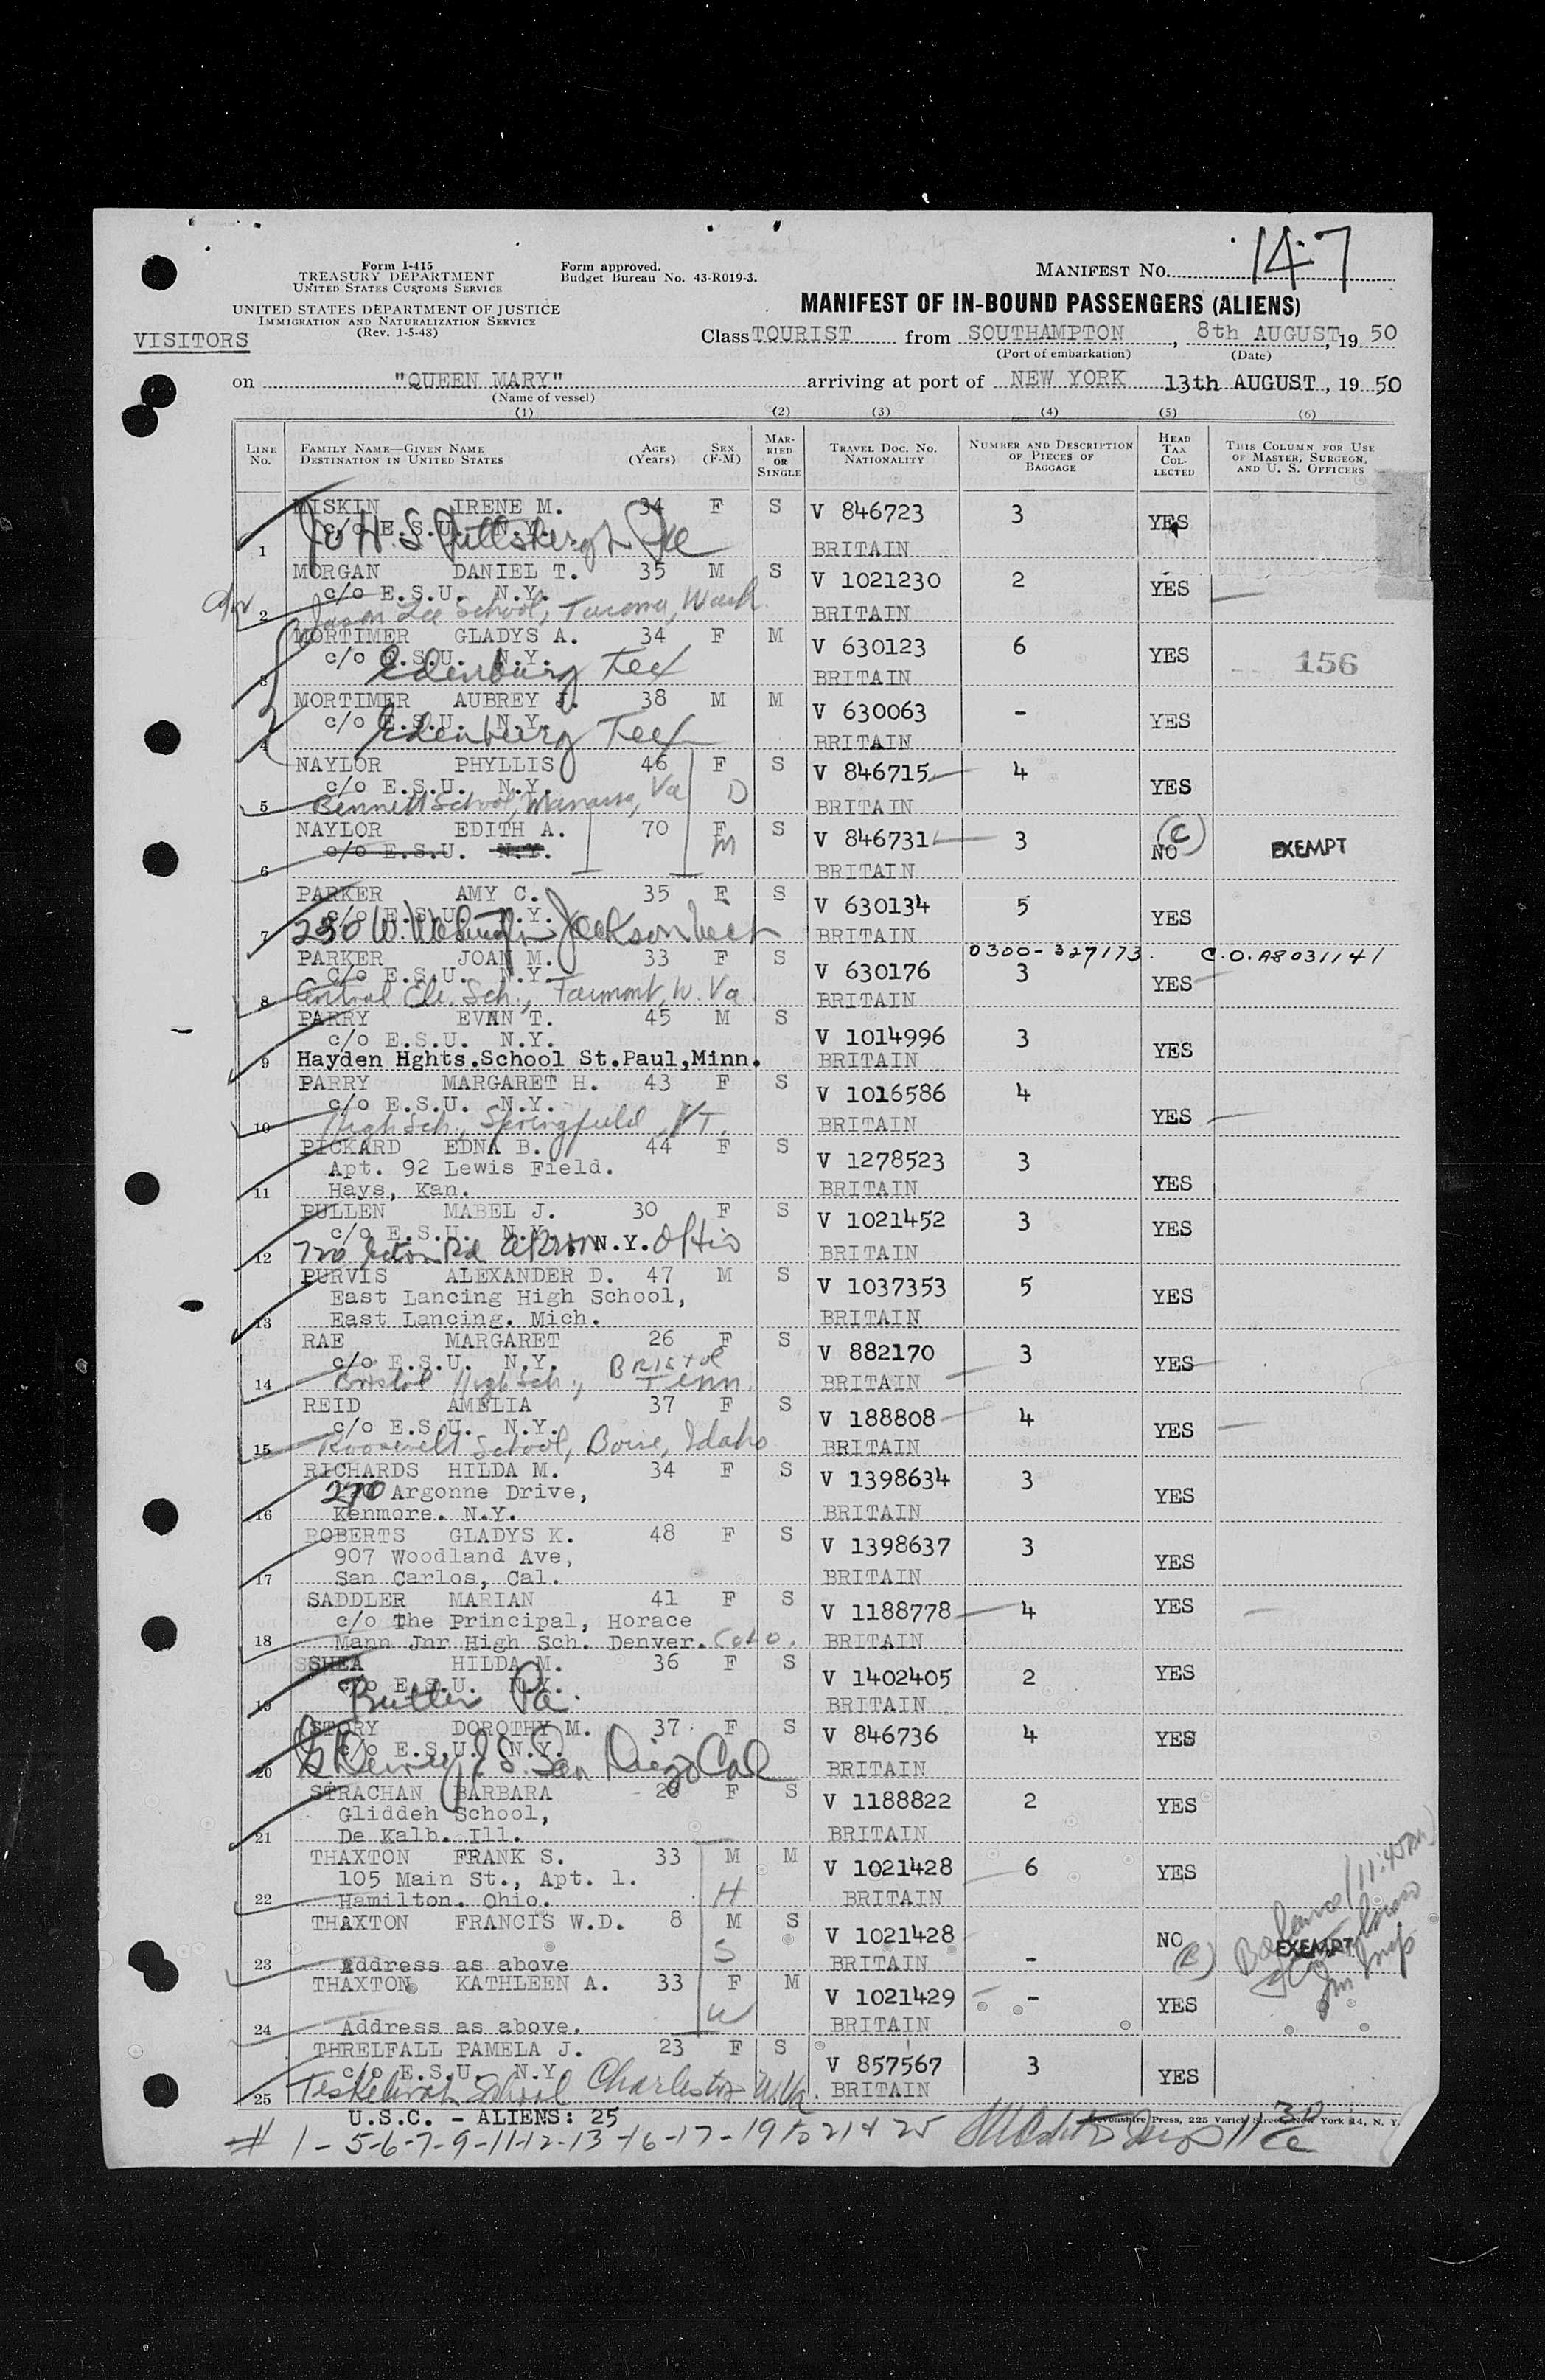 147
Form I-415
TREASURY DEPARTMENT
UNITED STATES CUSTOMS SERVICE
Form approved.
Budget Bureau No. 43-R019-3.
MANIFEST NO.
UNITED STATES DEPARTMENT OF JUSTICE
IMMIGRATION AND NATURALIZATION SERVICE
(Rev. 1-5-48)
MANIFEST OF IN-BOUND PASSENGERS (ALIENS)
VISITORS
Class TOURIST from SOUTHAMPTON, 8th AUGUST, 19 50
(Port of embarkation) (Date)
on "QUEEN MARY" arriving at port of NEW YORK 13th AUGUST, 19 50
(Name of vessel)
(1) (2) (3) (4) (5) (6)
LINE No. FAMILY NAME—GIVEN NAME DESTINATION IN UNITED STATES AGE (Years) SEX (F-M) MARRIED OR SINGLE TRAVEL DOC. NO. NATIONALITY NUMBER AND DESCRIPTION OF PIECES OF BAGGAGE HEAD TAX COLLECTED THIS COLUMN FOR USE OF MASTER, SURGEON, AND U. S. OFFICERS
MISKIN IRENE M. 34 F S V 846723 3 YES
c/o E.S.U. N.Y.
1 BRITAIN
MORGAN DANIEL T. 35 M S V 1021230 2 YES
c/o E.S.U. N.Y.
2 Jason Lee School, Tacoma, Wash. BRITAIN
MORTIMER GLADYS A. 34 F M V 630123 6 YES 156
c/o E.S.U. N.Y.
3 Edenburg Tex BRITAIN
MORTIMER AUBREY J. 38 M M V 630063 - YES
c/o E.S.U. N.Y.
4 Edenburg Tex BRITAIN
NAYLOR PHYLLIS 46 F S V 846715 4 YES
c/o E.S.U. N.Y.
5 Bennett School, Manassa, Va D BRITAIN
NAYLOR EDITH A. 70 F S V 846731 3 NO (C) EXEMPT
c/o E.S.U. N.Y. M
6 BRITAIN
PARKER AMY C. 35 F S V 630134 5 YES
c/o E.S.U. N.Y.
7 230 W. Jackson BRITAIN
0300-327173. C.O. A8031141
PARKER JOAN M. 33 F S V 630176 3 YES
c/o E.S.U. N.Y.
8 Central Ele. Sch., Fairmont, W. Va. BRITAIN
PARRY EVAN T. 45 M S V 1014996 3 YES
c/o E.S.U. N.Y.
9 Hayden Hghts.School St.Paul,Minn. BRITAIN
PARRY MARGARET H. 43 F S V 1016586 4 YES
c/o E.S.U. N.Y.
10 High Sch., Springfield, VT. BRITAIN
PICKARD EDNA B. 44 F S V 1278523 3 YES
Apt. 92 Lewis Field.
11 Hays, Kan. BRITAIN
PULLEN MABEL J. 30 F S V 1021452 3 YES
c/o E.S.U. N.Y.
12 720 Rd Akron N.Y. Ohio BRITAIN
PURVIS ALEXANDER D. 47 M S V 1037353 5 YES
East Lancing High School,
13 East Lancing. Mich. BRITAIN
RAE MARGARET 26 F S V 882170 3 YES
c/o E.S.U. N.Y. BRISTOL
14 Bristol High Sch., Tenn. BRITAIN
REID AMELIA 37 F S V 188808 4 YES
c/o E.S.U. N.Y.
15 Roosevelt School, Boise, Idaho BRITAIN
RICHARDS HILDA M. 34 F S V 1398634 3 YES
270 Argonne Drive,
16 Kenmore. N.Y. BRITAIN
ROBERTS GLADYS K. 48 F S V 1398637 3 YES
907 Woodland Ave,
17 San Carlos, Cal. BRITAIN
SADDLER MARIAN 41 F S V 1188778 4 YES
c/o The Principal, Horace
18 Mann Jnr High Sch. Denver. COLO. BRITAIN
SHEA HILDA M. 36 F S V 1402405 2 YES
c/o E.S.U. N.Y.
19 Butler Pa. BRITAIN
STORY DOROTHY M. 37 F S V 846736 4 YES
c/o E.S.U. N.Y.
20 San Diego Cal BRITAIN
STRACHAN BARBARA F S V 1188822 2 YES
Gliddeh School,
21 De Kalb. Ill. BRITAIN
THAXTON FRANK S. 33 M M V 1021428 6 YES
105 Main St., Apt. 1.
22 Hamilton. Ohio. H BRITAIN
THAXTON FRANCIS W.D. 8 M S V 1021428 - NO EXEMPT
23 Address as above S BRITAIN
THAXTON KATHLEEN A. 33 F M V 1021429 - YES
24 Address as above. W BRITAIN
THRELFALL PAMELA J. 23 F S V 857567 3 YES
c/o E.S.U. N.Y.
25 School Charleston W.Va. BRITAIN
U.S.C. - ALIENS: 25
Devonshire Press, 225 Varick Street, New York 14, N. Y.
# 1-5-6-7-9-11-12-13-16-17-19 to 21 & 25